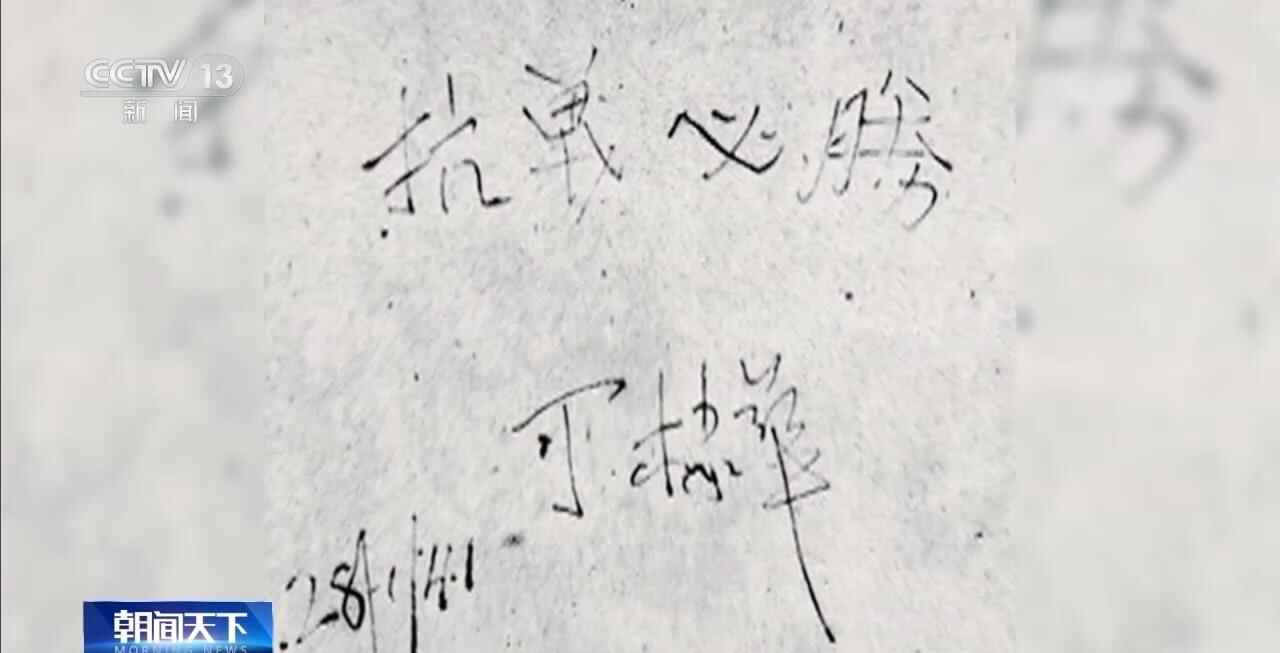 CCTV 13
新闻
抗战必勝
華
28/1/41
朝闻天下
MORNING NEWS